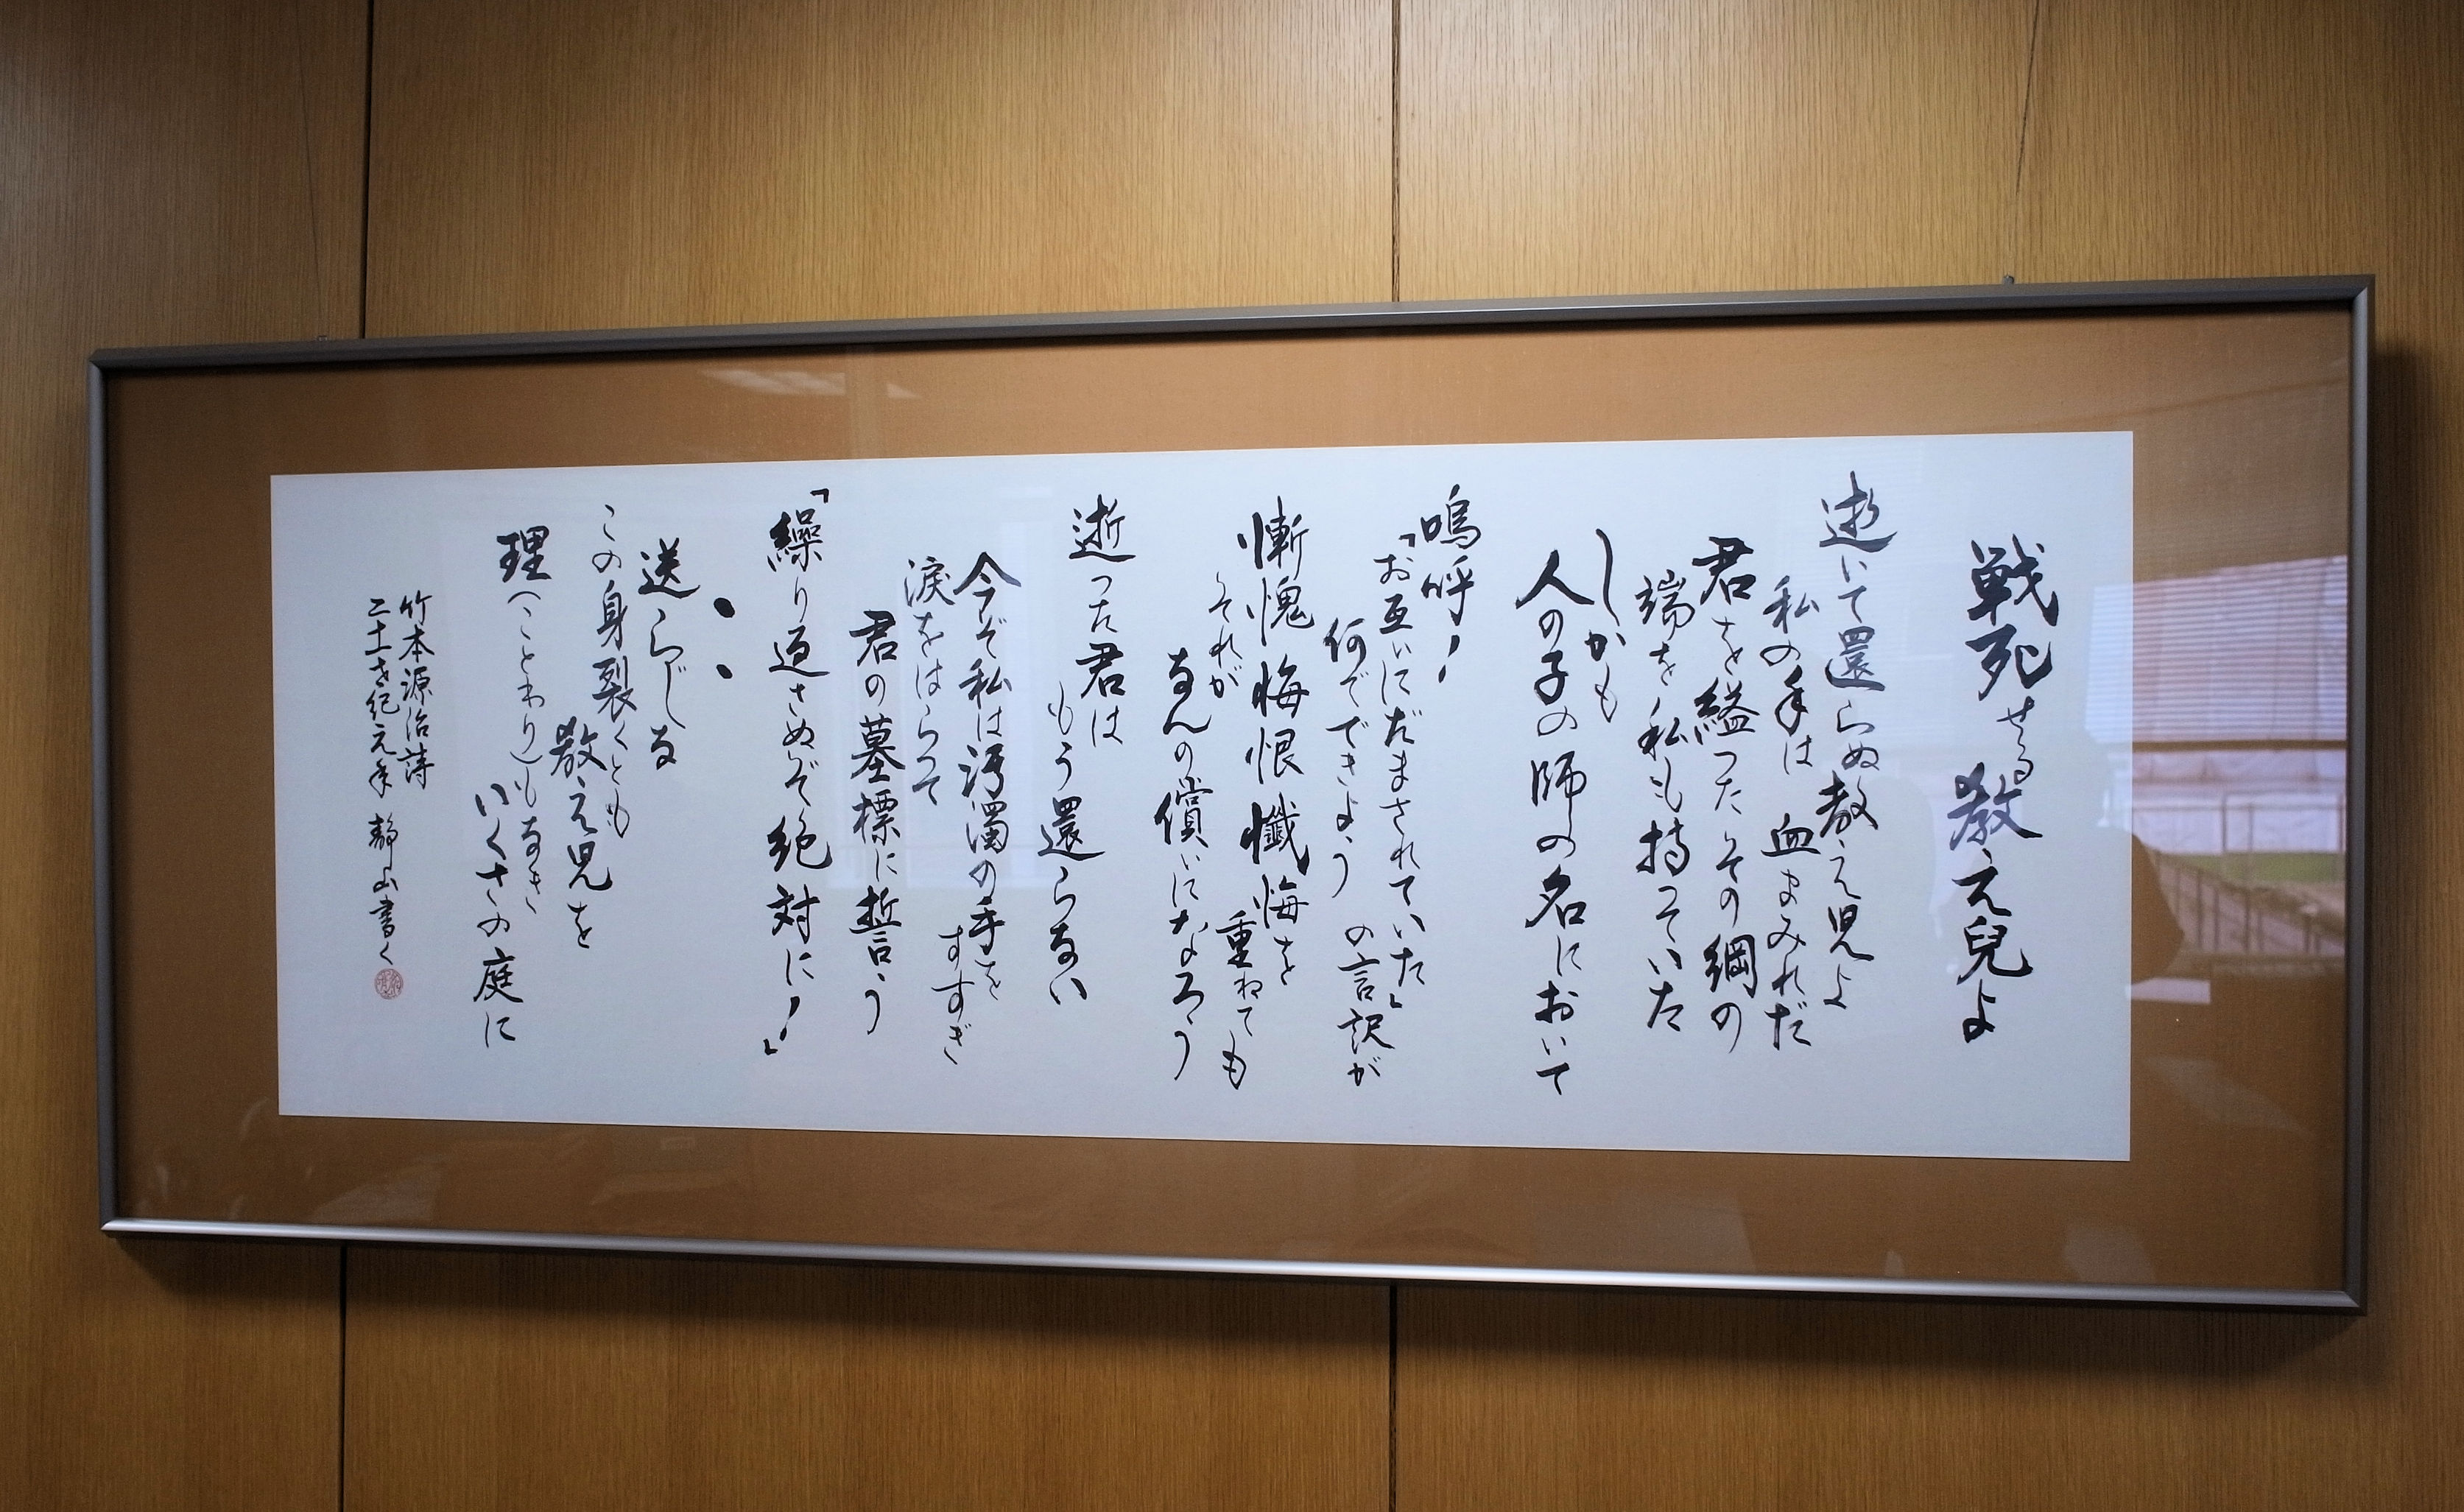 戦死せる教え兒よ
逝いて還らぬ教え児よ
私の手は血まみれだ
君を縊ったその綱の
端を私も持っていた
しかも
人の子の師の名において
嗚呼!
「お互いにだまされていた」
の言訳が
何でできよう
慚愧悔恨懺悔を
重ねても
それが
なんの償いになろう
逝った君は
もう還らない
今ぞ私は汚濁の手を
すすぎ
涙をはらって
君の墓標に誓う
「繰り返さぬぞ絶対に!」
・・
送らじな
この身裂くとも
教え児を
理(ことわり)もなき
いくさの庭に
竹本源治詩
二十一世紀元年 静山書く